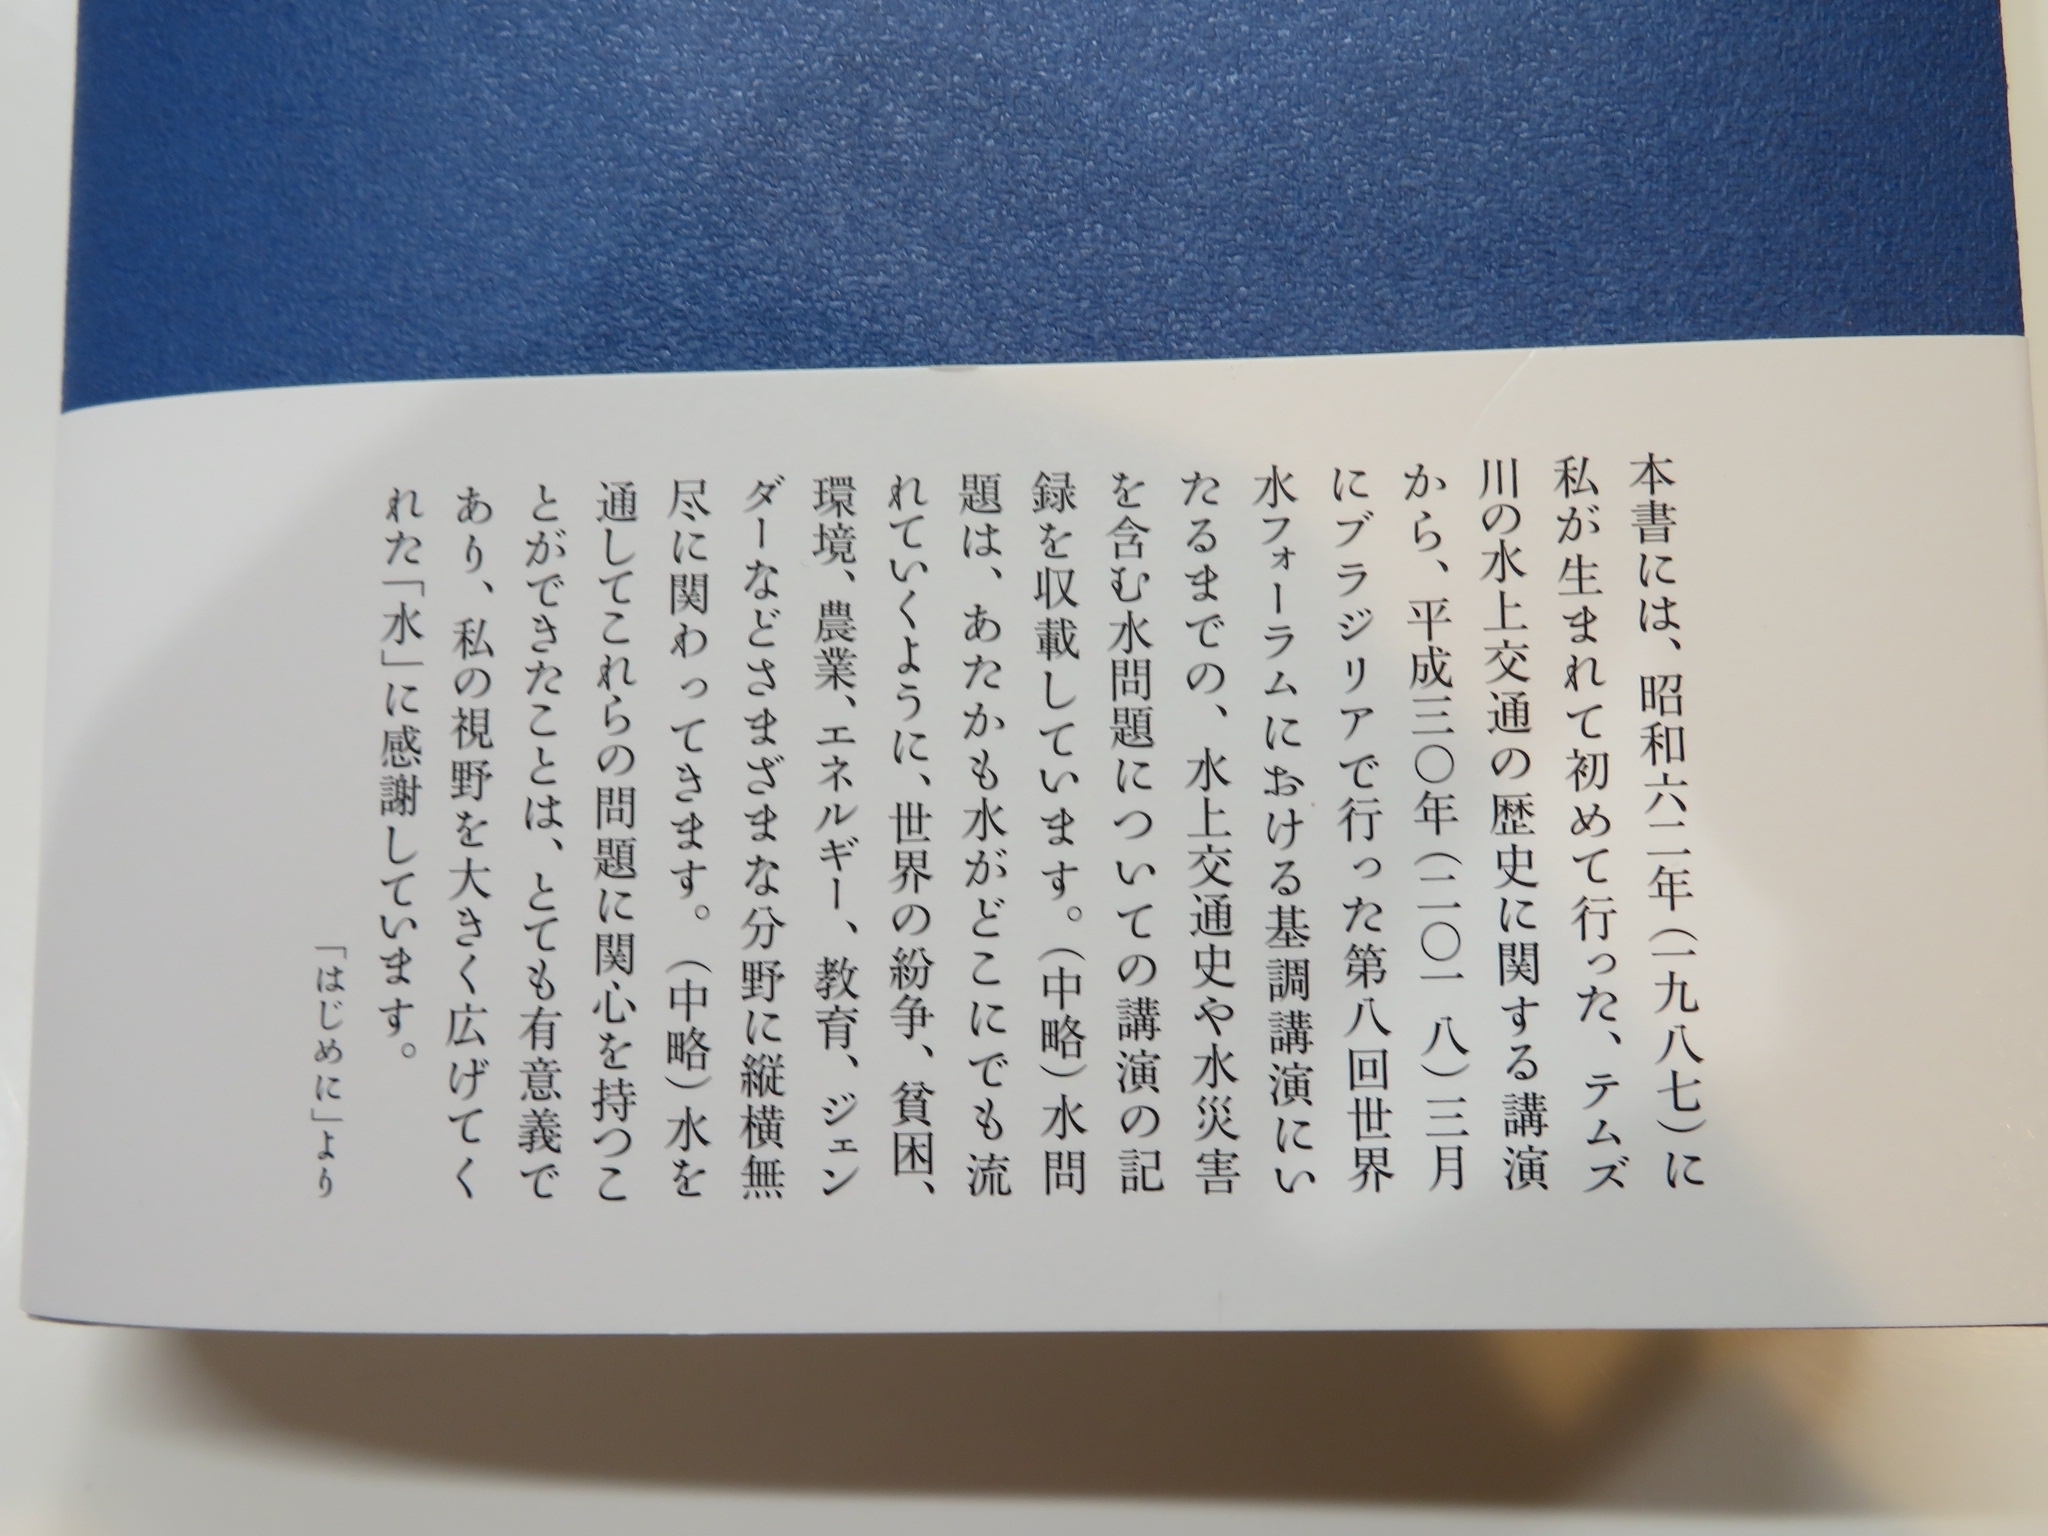 本書には、昭和六二年（一九八七）に
私が生まれて初めて行った、テムズ
川の水上交通の歴史に関する講演
から、平成三〇年（二〇一八）三月
にブラジリアで行った第八回世界
水フォーラムにおける基調講演にい
たるまでの、水上交通史や水災害
を含む水問題についての講演の記
録を収載しています。（中略）水問
題は、あたかも水がどこにでも流
れていくように、世界の紛争、貧困、
環境、農業、エネルギー、教育、ジェン
ダーなどさまざまな分野に縦横無
尽に関わってきます。（中略）水を
通してこれらの問題に関心を持つこ
とができたことは、とても有意義で
あり、私の視野を大きく広げてく
れた「水」に感謝しています。
「はじめに」より